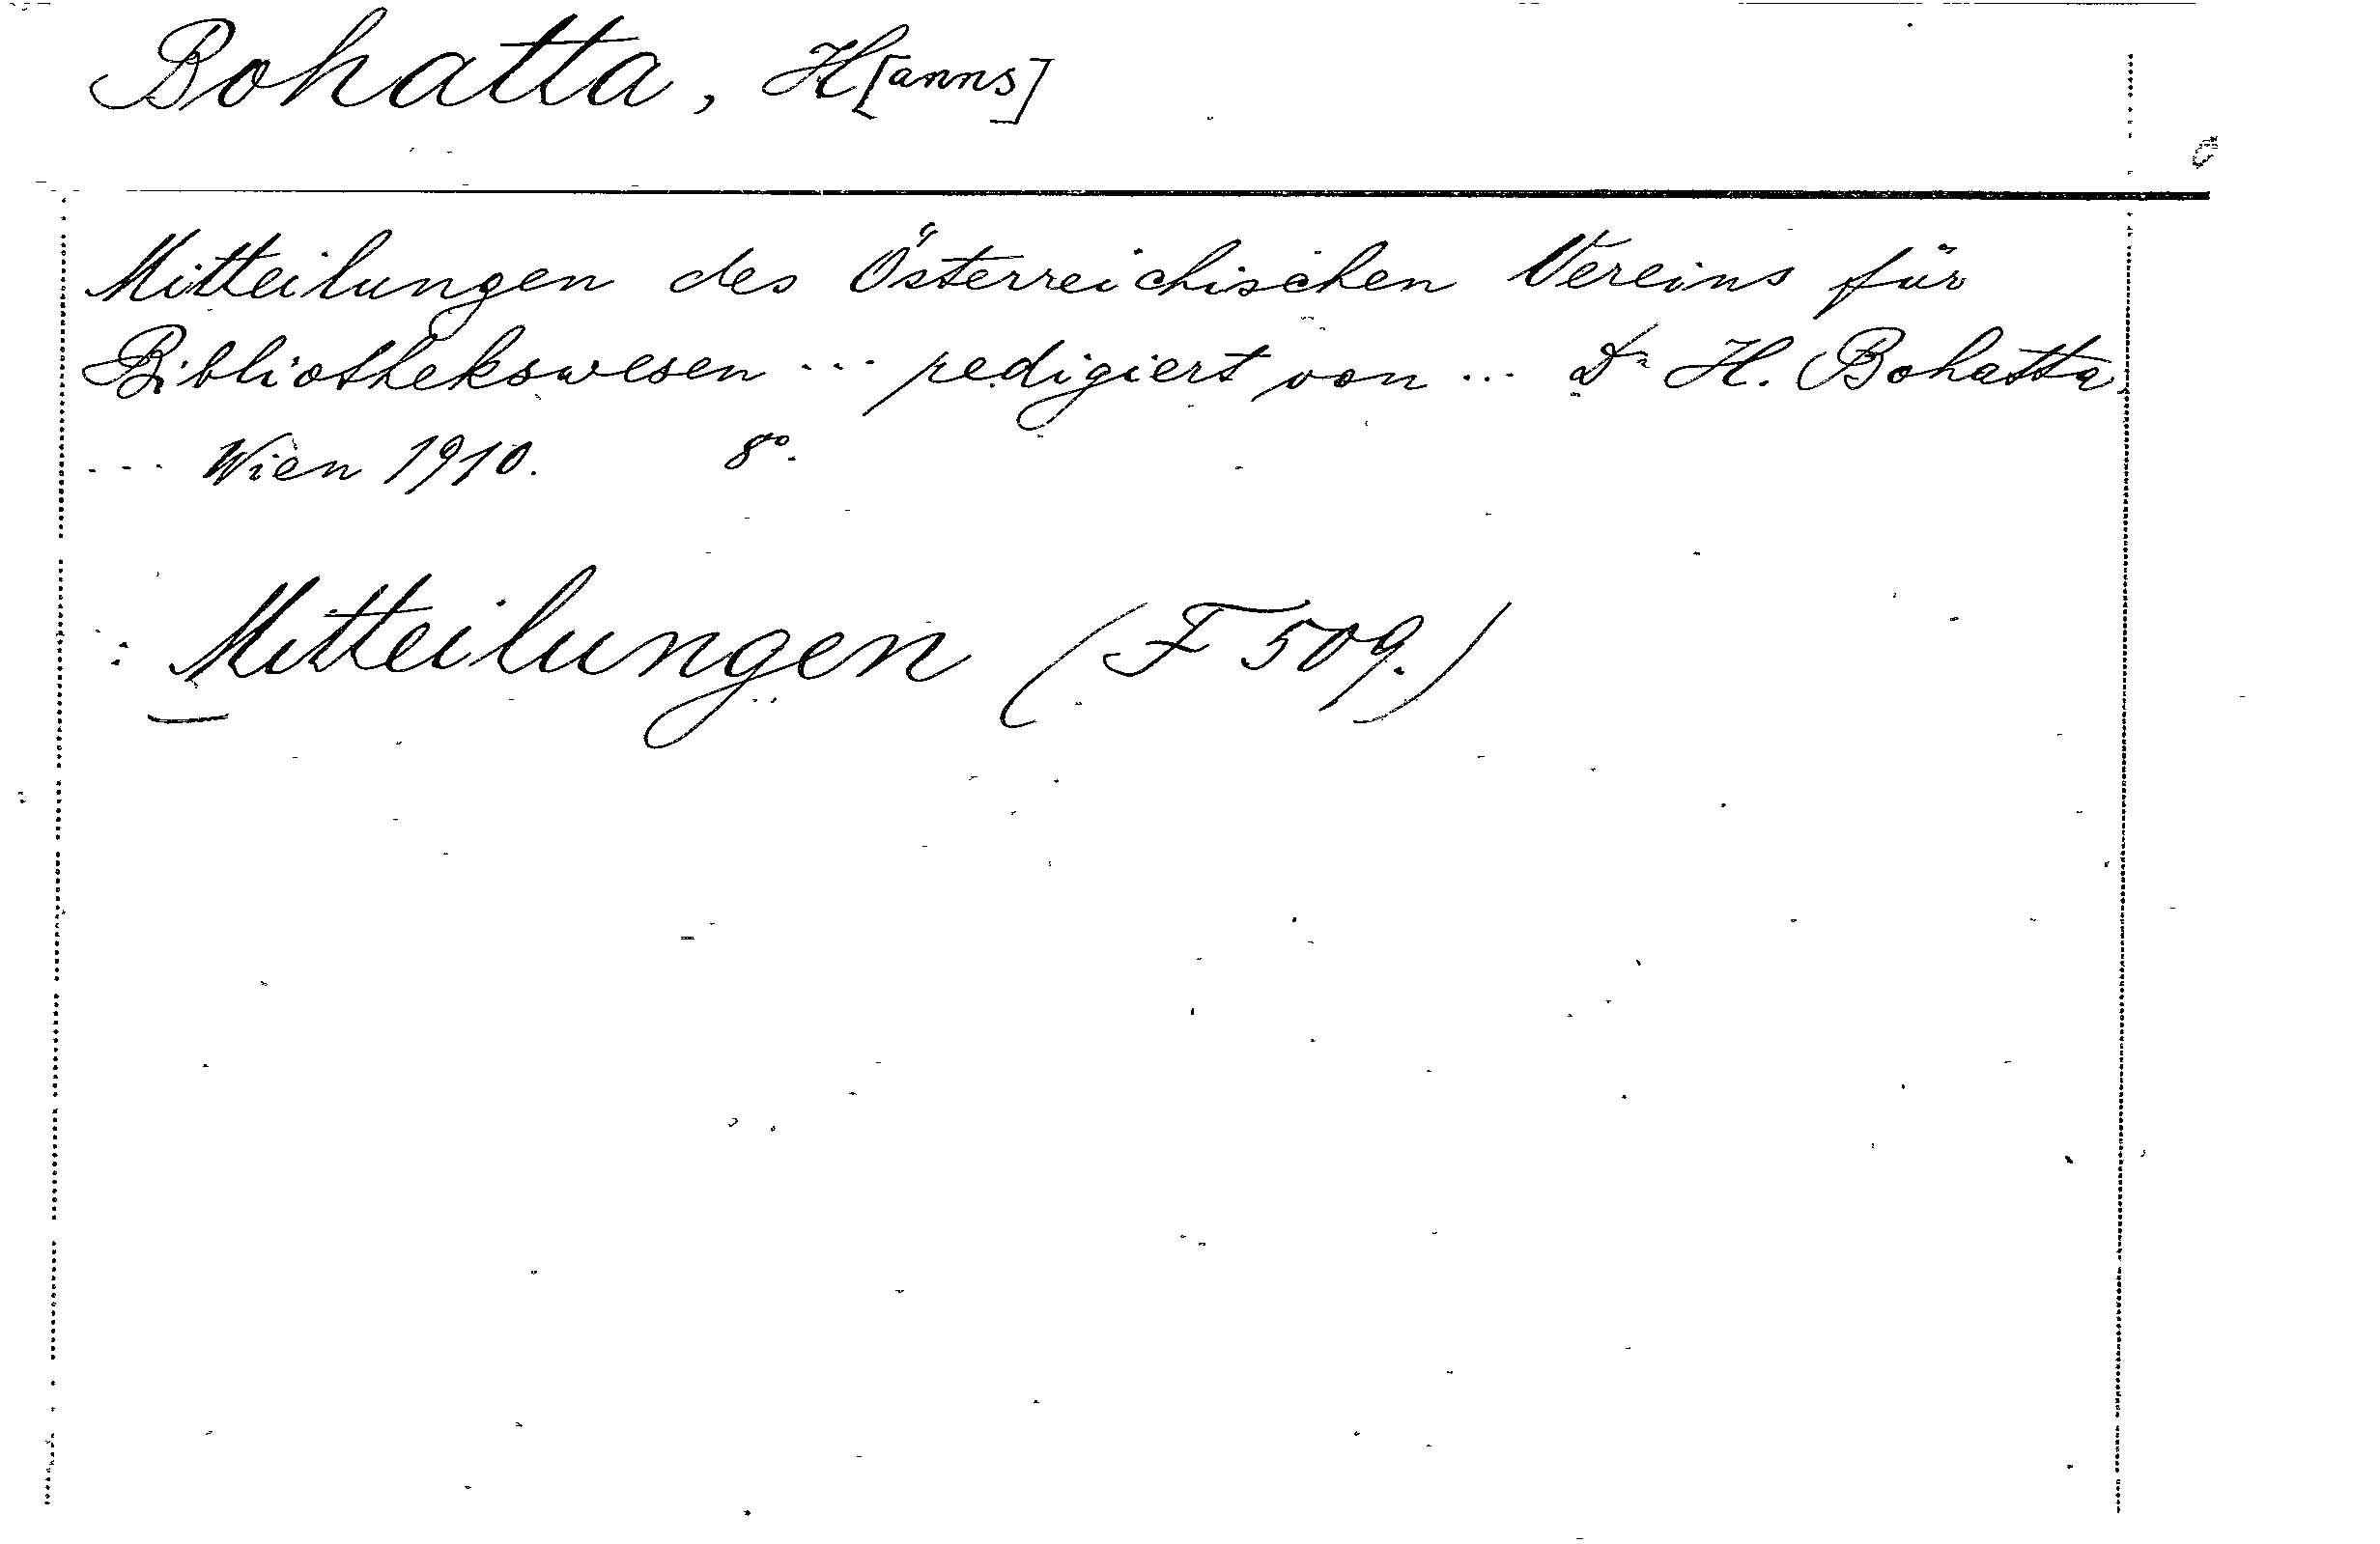 Bohatta, H[anns]
Mitteilungen des Österreichischen Vereins für
Bibliothekswesen ... redigiert von ... Dr H. Bohatta
... Wien 1910. 8°.
: Mitteilungen (F 509.)